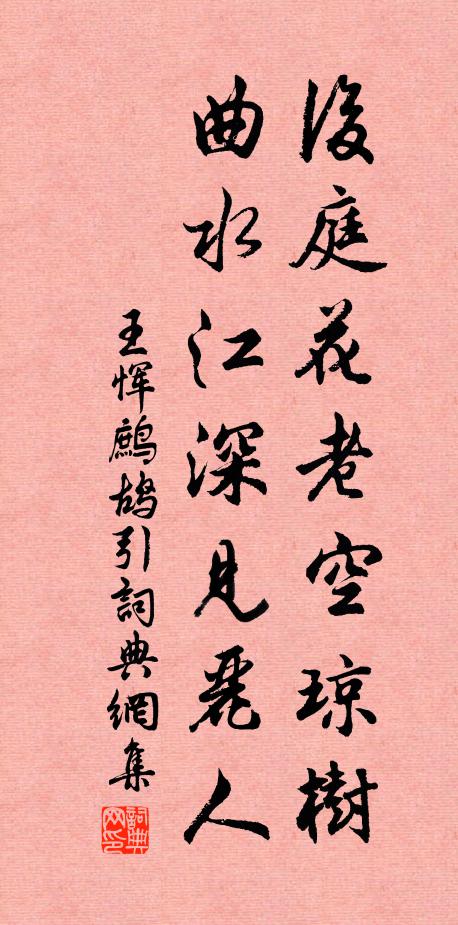 後庭花老空琼樹
曲水江深見麗人
王恽鷓鴣引詞典網集
詞典網印